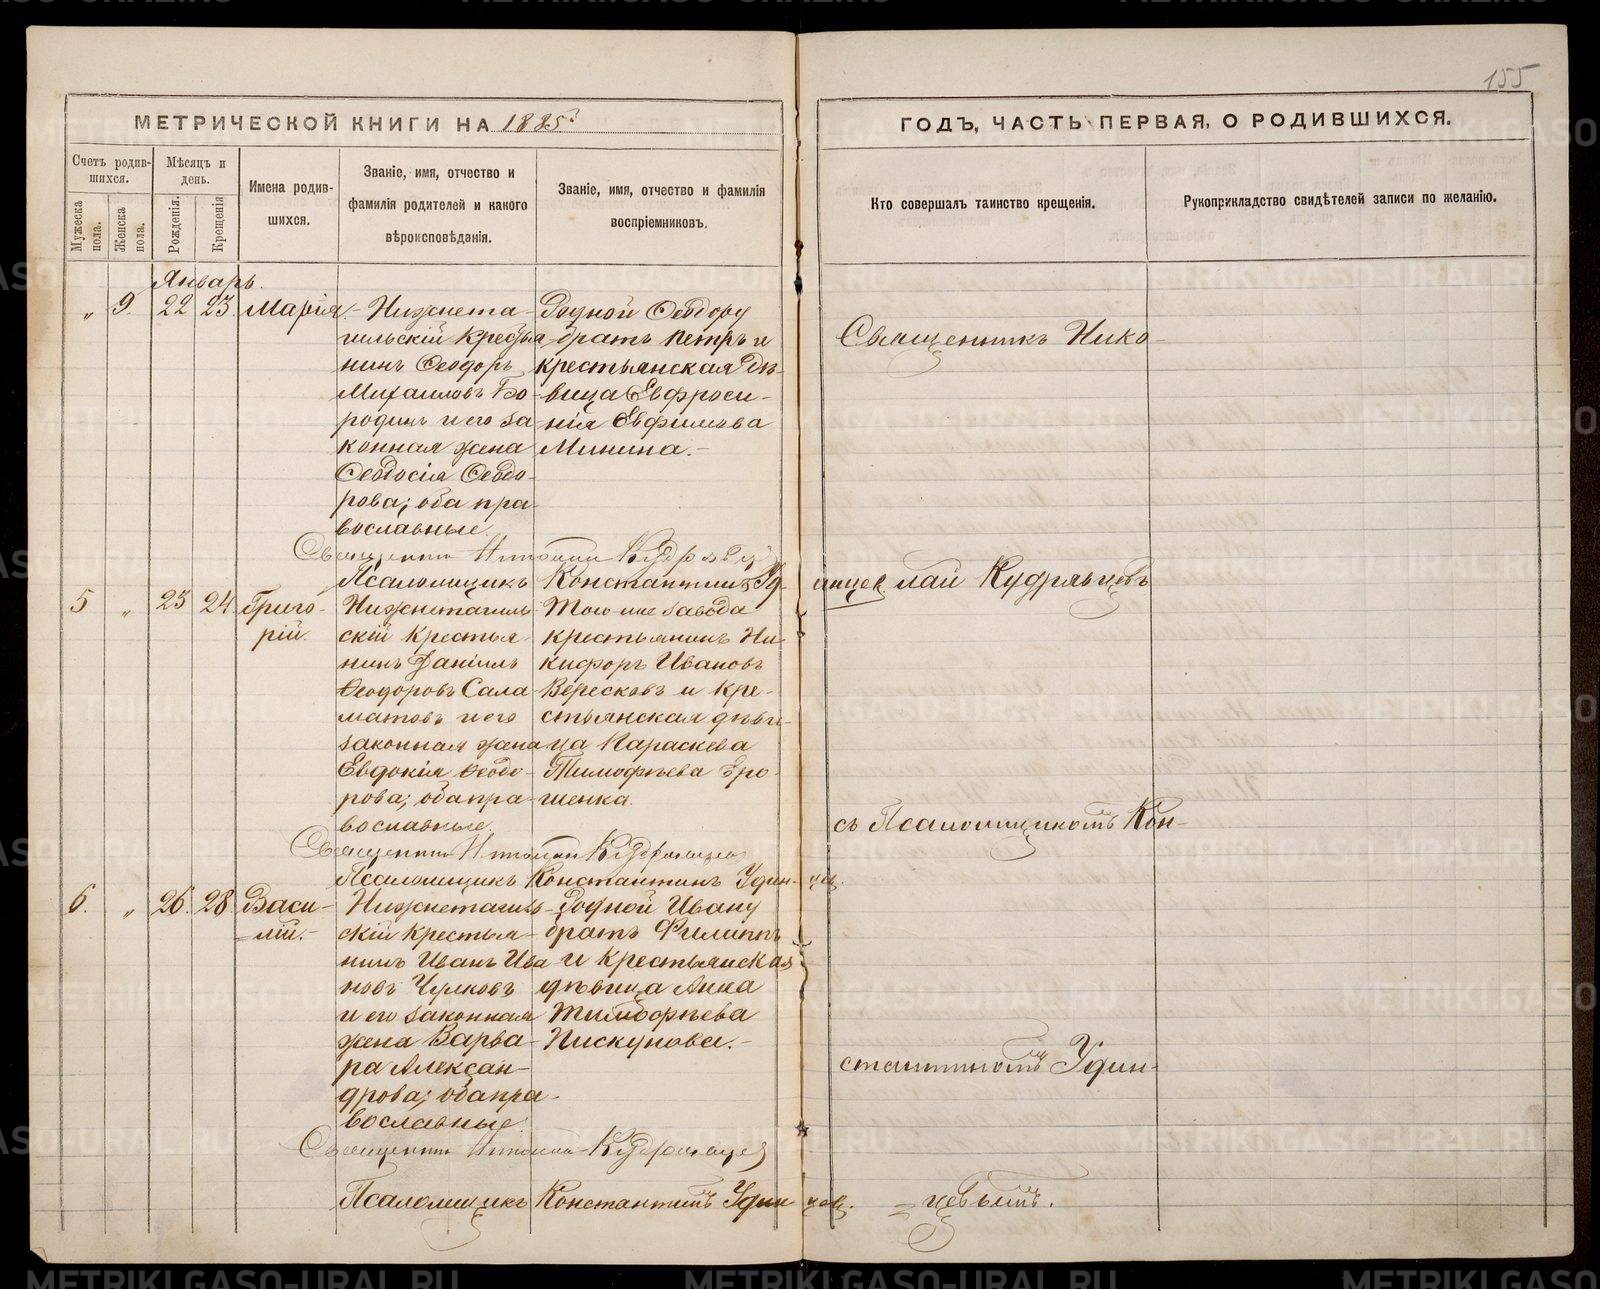 155
МЕТРИЧЕСКОЙ КНИГИ НА 1885
ГОДЪ, ЧАСТЬ ПЕРВАЯ, О РОДИВШИХСЯ.
Счетъ родив-
шихся.
Мужеска
пола.
Женска
пола.
Мѣсяцъ и
день.
Рожденія.
Крещенія
Имена родив-
шихся.
Званіе, имя, отчество и
фамилія родителей и какого
вѣроисповѣданія.
Званіе, имя, отчество и фамилія
воспріемниковъ.
Кто совершалъ таинство крещенія.
Рукоприкладство свидѣтелей записи по желанію.
Январь.
„ 9. 22 23. Марія.
Нижнета-
гильскій кресть-
нинъ Ѳеодоръ
Михаиловъ Бо-
родинъ и его за-
конная жена
Ѳеодосія Ѳеодо-
рова; оба пра-
вославные.
Родной Ѳеодору
братъ Петръ и
крестьянская дѣ-
вица Евфроси-
нія Евфимова
Минина.
Священникъ Нико-
Псаломщикъ Константинъ Уд-
инцев
5 „ 23 24 Григо-
рій.
Нижнетагиль-
скій крестья-
нинъ Даніилъ
Ѳеодоровъ Сала-
матовъ и его
законная жена
Евдокія Ѳеодо-
рова; оба пра-
вославные.
Того-же завода
крестьянинъ Ни-
кифоръ Ивановъ
Вересковъ и кре-
стьянская дѣви-
ца Параскева
Тимофѣева Еро-
шенка.
лай Кудрявцевъ
съ Псаломщикомъ Кон-
Псаломщикъ Константинъ Удин-
цев.
6. „ 26. 28 Васи-
лій.
Нижнетагиль-
скій крестья-
нинъ Иванъ Ива-
новъ Чулковъ
и его законная
жена Варва-
ра Алексан-
дрова; оба пра-
вославные.
Родной Ивану
братъ Филиппъ
и крестьянская
дѣвица Анна
Тимофѣева
Пискунова.
стантиномъ Удин-
Псаломщикъ Константинъ Удин-
цев.
цевымъ.
METRIKI.GASO-URAL.RU